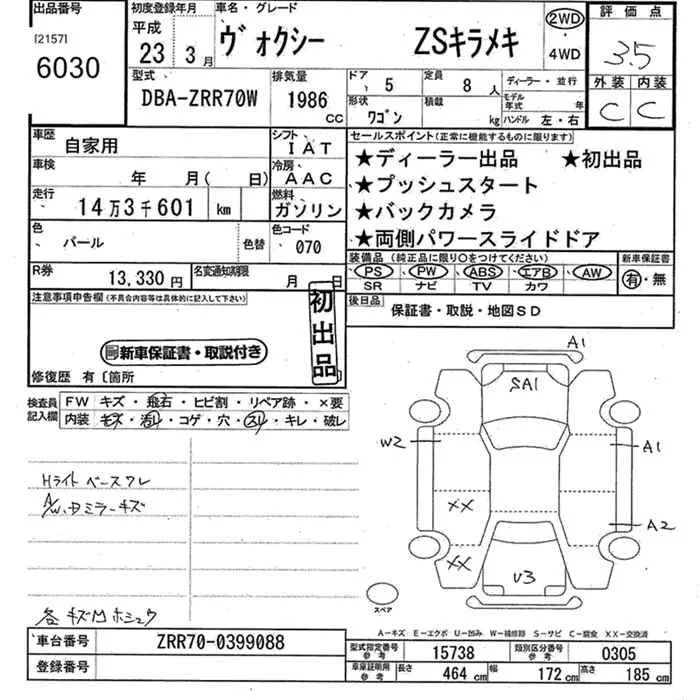 出品番号
[2157]
6030
初度登録年月
平成
23 3月
車名・グレード
ヴォクシー ZSキラメキ
2WD
・
4WD
評価点
3.5
外装 内装
C C
型式
DBA-ZRR70W
排気量
1986 cc
ドア 5
形状 ワゴン
定員 8 人
積載 kg
ディーラー・並行
モデル年式 年
ハンドル 左・右
車歴 自家用
シフト IAT
車検 年 月( 日)
冷房 AAC
走行 14万3千601 km
燃料 ガソリン
色 パール 色替
色コード 070
R券 13,330 円
名変通知期限 月 日
セールスポイント(正常に機能するものに限ります)
★ディーラー出品 ★初出品
★プッシュスタート
★バックカメラ
★両側パワースライドドア
装備品(純正品に限り○をつけてください)
PS PW ABS エアB AW
SR ナビ TV カワ
新車保証書
有・無
後日品
保証書・取説・地図SD
注意事項申告欄(不具合内容等は具体的に記入して下さい)
初出品
新車保証書・取説付き
修復歴 有〔箇所
検査員記入欄
FW キズ・飛石・ヒビ割・リペア跡・×要
内装 キズ・汚れ・コゲ・穴・スレ・キレ・破レ
Hライト ベースワレ
A/W、Dミラーキズ
各キズ凹ホシュウ
A1
SA1
W2
A1
XX
A2
XX
U3
スペア
A－キズ E－エクボ U－凹み W－補修跡 S－サビ C－腐食 XX－交換済
車台番号 ZRR70-0399088
登録番号
型式指定番号 参考 15738
類別区分番号 参考 0305
車庫証明用 参考 長さ 464 cm 幅 172 cm 高さ 185 cm